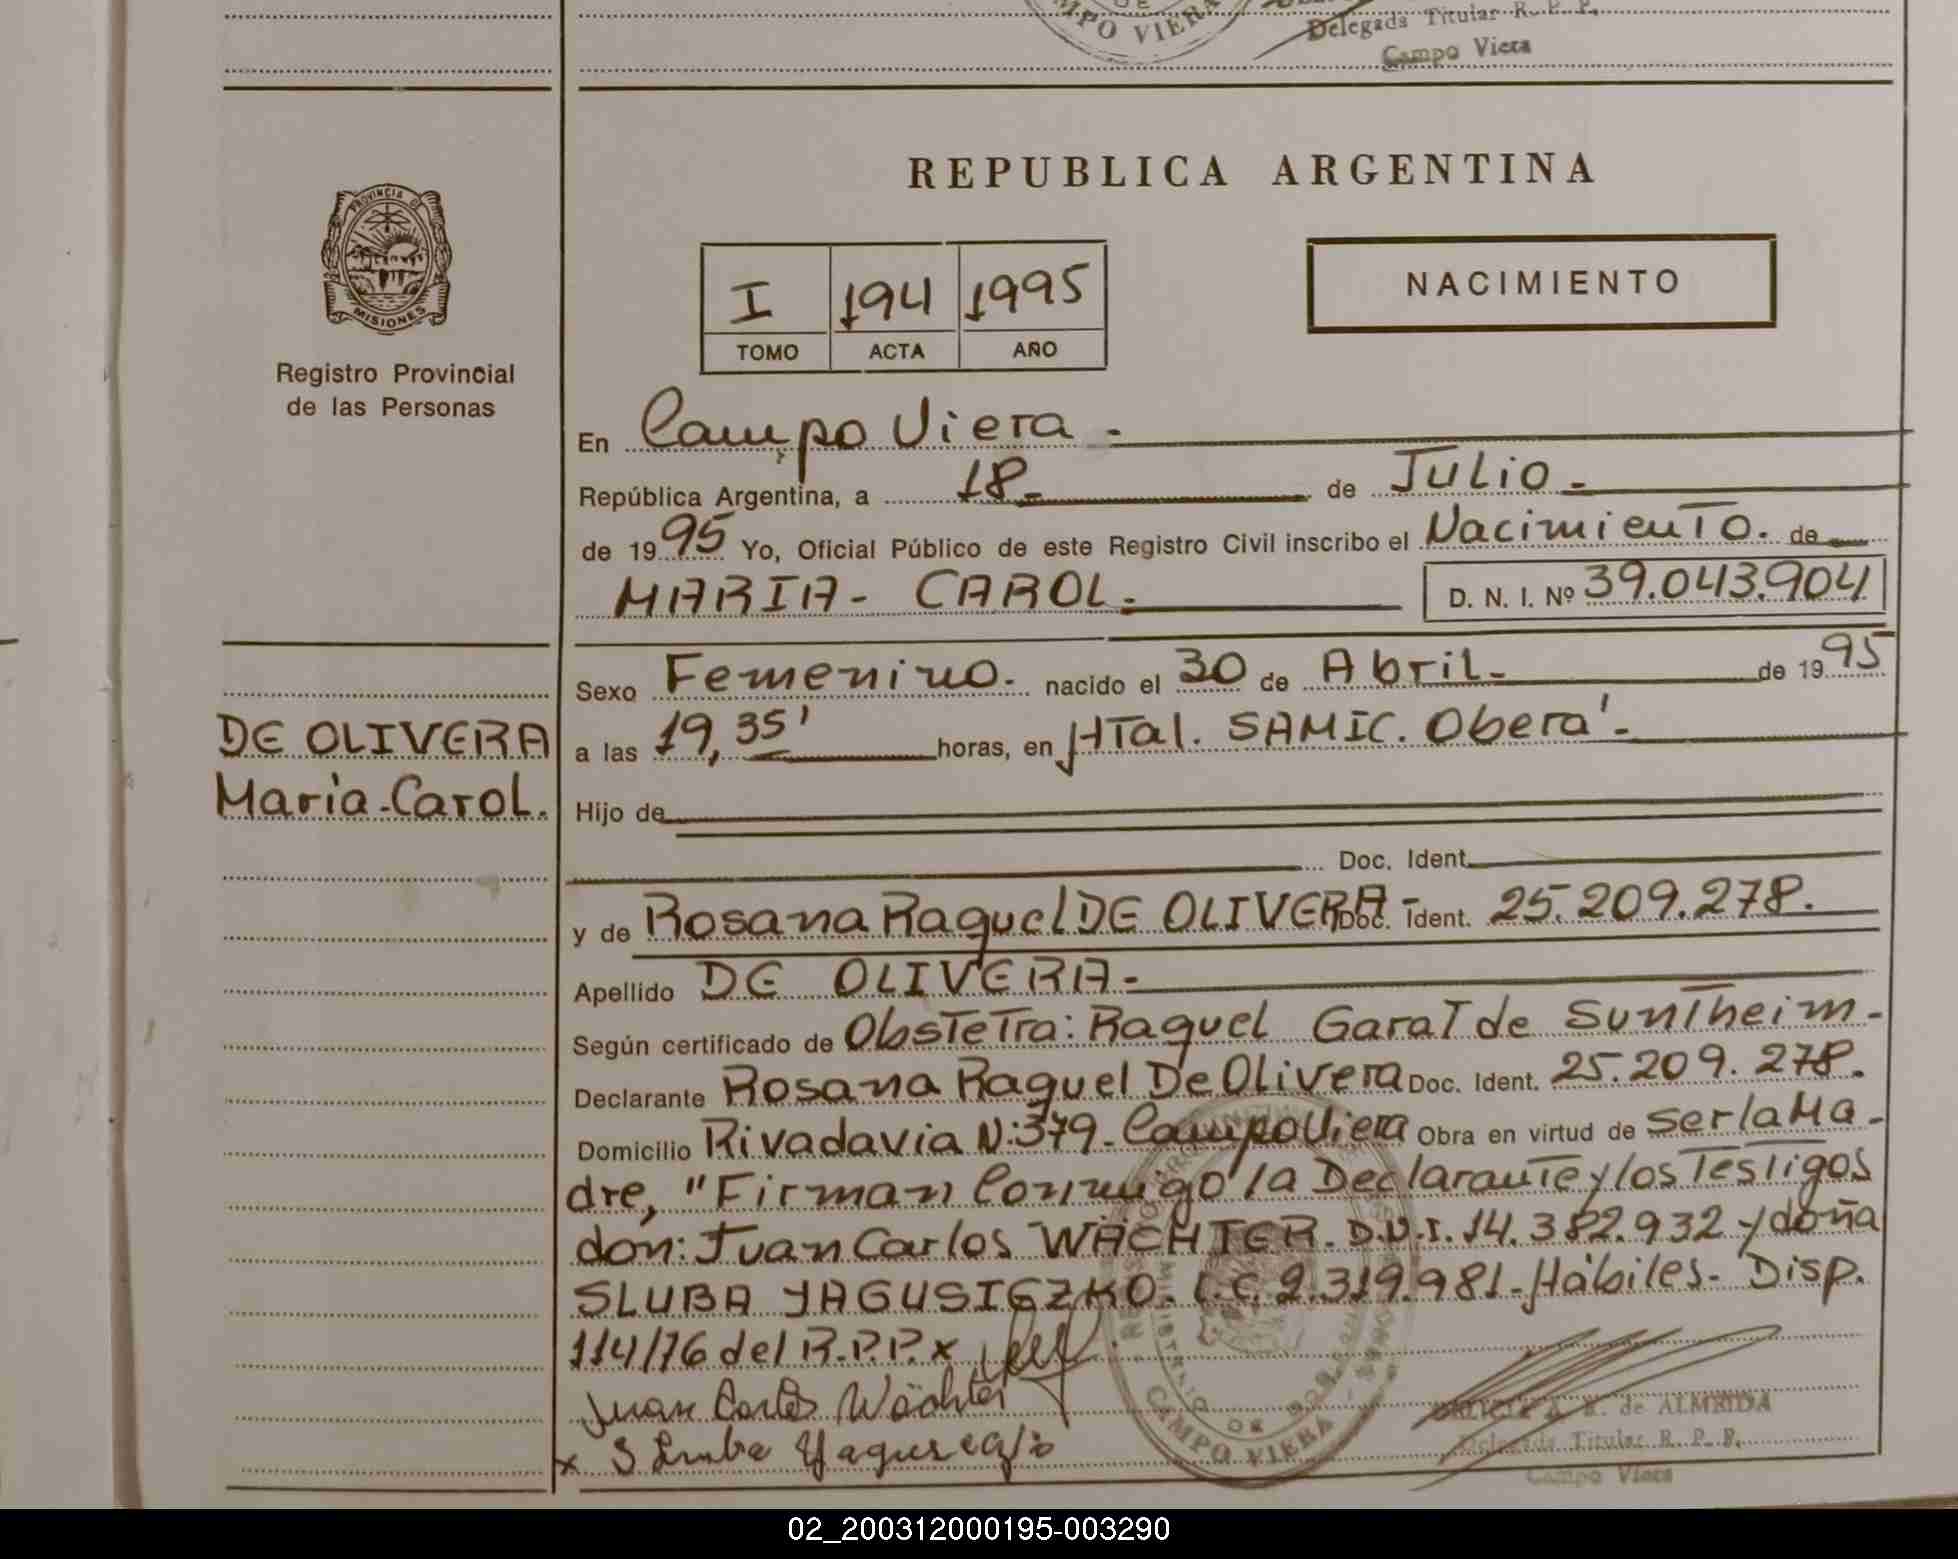 CAMPO VIERA
Delegada Titular R. P. P.
Campo Viera
REPUBLICA ARGENTINA
PROVINCIA DE
MISIONES
Registro Provincial
de las Personas
I 194 1995
TOMO ACTA AÑO
NACIMIENTO
En Campo Viera -
República Argentina, a 18- de Julio -
de 1995 Yo, Oficial Público de este Registro Civil inscribo el Nacimiento. de
MARIA - CAROL. D. N. I. Nº 39.043.904
DE OLIVERA
Maria-Carol.
Sexo Femenino. nacido el 30 de Abril- de 1995
a las 19,35' horas, en HTal. SAMIC. Oberá -
Hijo de
Doc. Ident.
y de Rosana Raquel DE OLIVERA - Doc. Ident. 25.209.278.
Apellido DE OLIVERA -
Según certificado de Obstetra: Raquel Garat de Suntheim -
Declarante Rosana Raquel De Olivera Doc. Ident. 25.209.278.
Domicilio Rivadavia N:379- Campo Viera Obra en virtud de ser la Ma-
dre, "Firman Conmigo la Declarante y los Testigos
don: Juan Carlos WÄCHTER. D.N.I. 14.382.932 y doña
SLUBA YAGUSIEZKO. L.C. 2.319.981- Hábiles- Disp.
114/76 del R.P.P. x
Juan Carlos Wächter
x Sluba
CAMPO VIERA
de ALMEIDA
Delegada Titular R. P. P.
Campo Viera
02_200312000195-003290